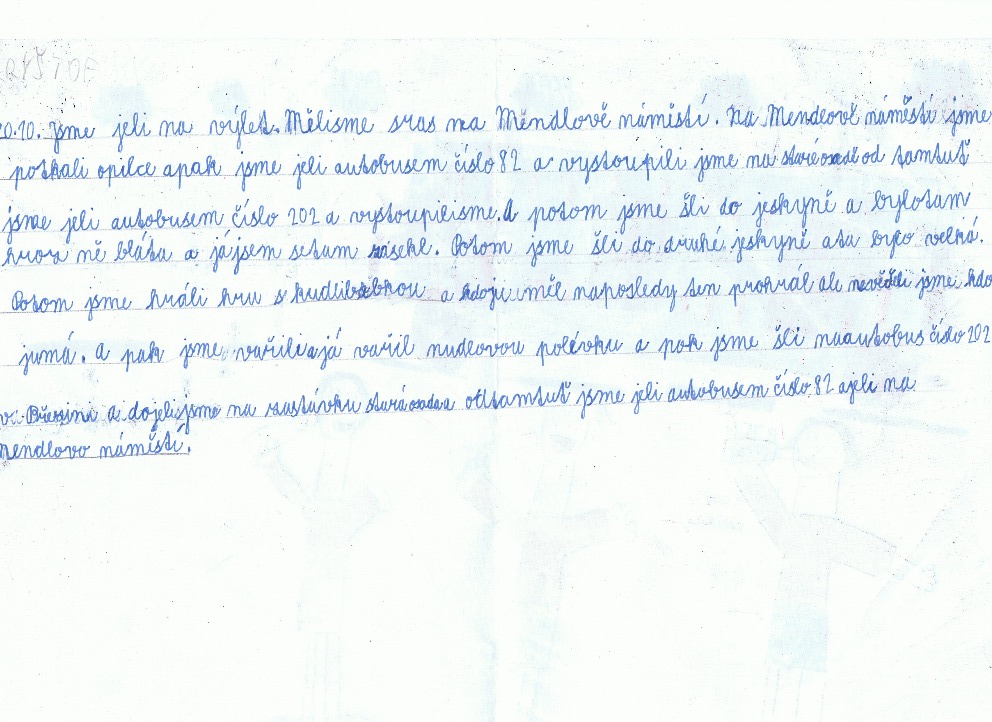 20.10. Jsme jeli na výlet. Mělisme sras na Měndlově náměstí. Na Mendlově náměstí jsme
potkali opilce apak jsme jeli autobusem číslo 82 a vystoupili jsme na staré osadě od tamtuť
jsme jeli autobusem číslo 202 a vystoupilisme. A potom jsme šli do jeskyně a bylotam
hrozně bláta a jájsem setam zasekl. Potom jsme šli do druhé jeskyně ata byla velká.
Potom jsme hráli hru s kudlibabkou a kdoji měl naposledy ten prohrál ale nevěděli jsme kdo
jumá. a pak jsme vařilia já vařil nudlovou polévku a pak jsme šli naautobus číslo 202
v. Březini a dojelijsme na zastávku stará osada a ottamtuť jsme jeli autobusem číslo 82 ajeli na
mendlovo náměstí.